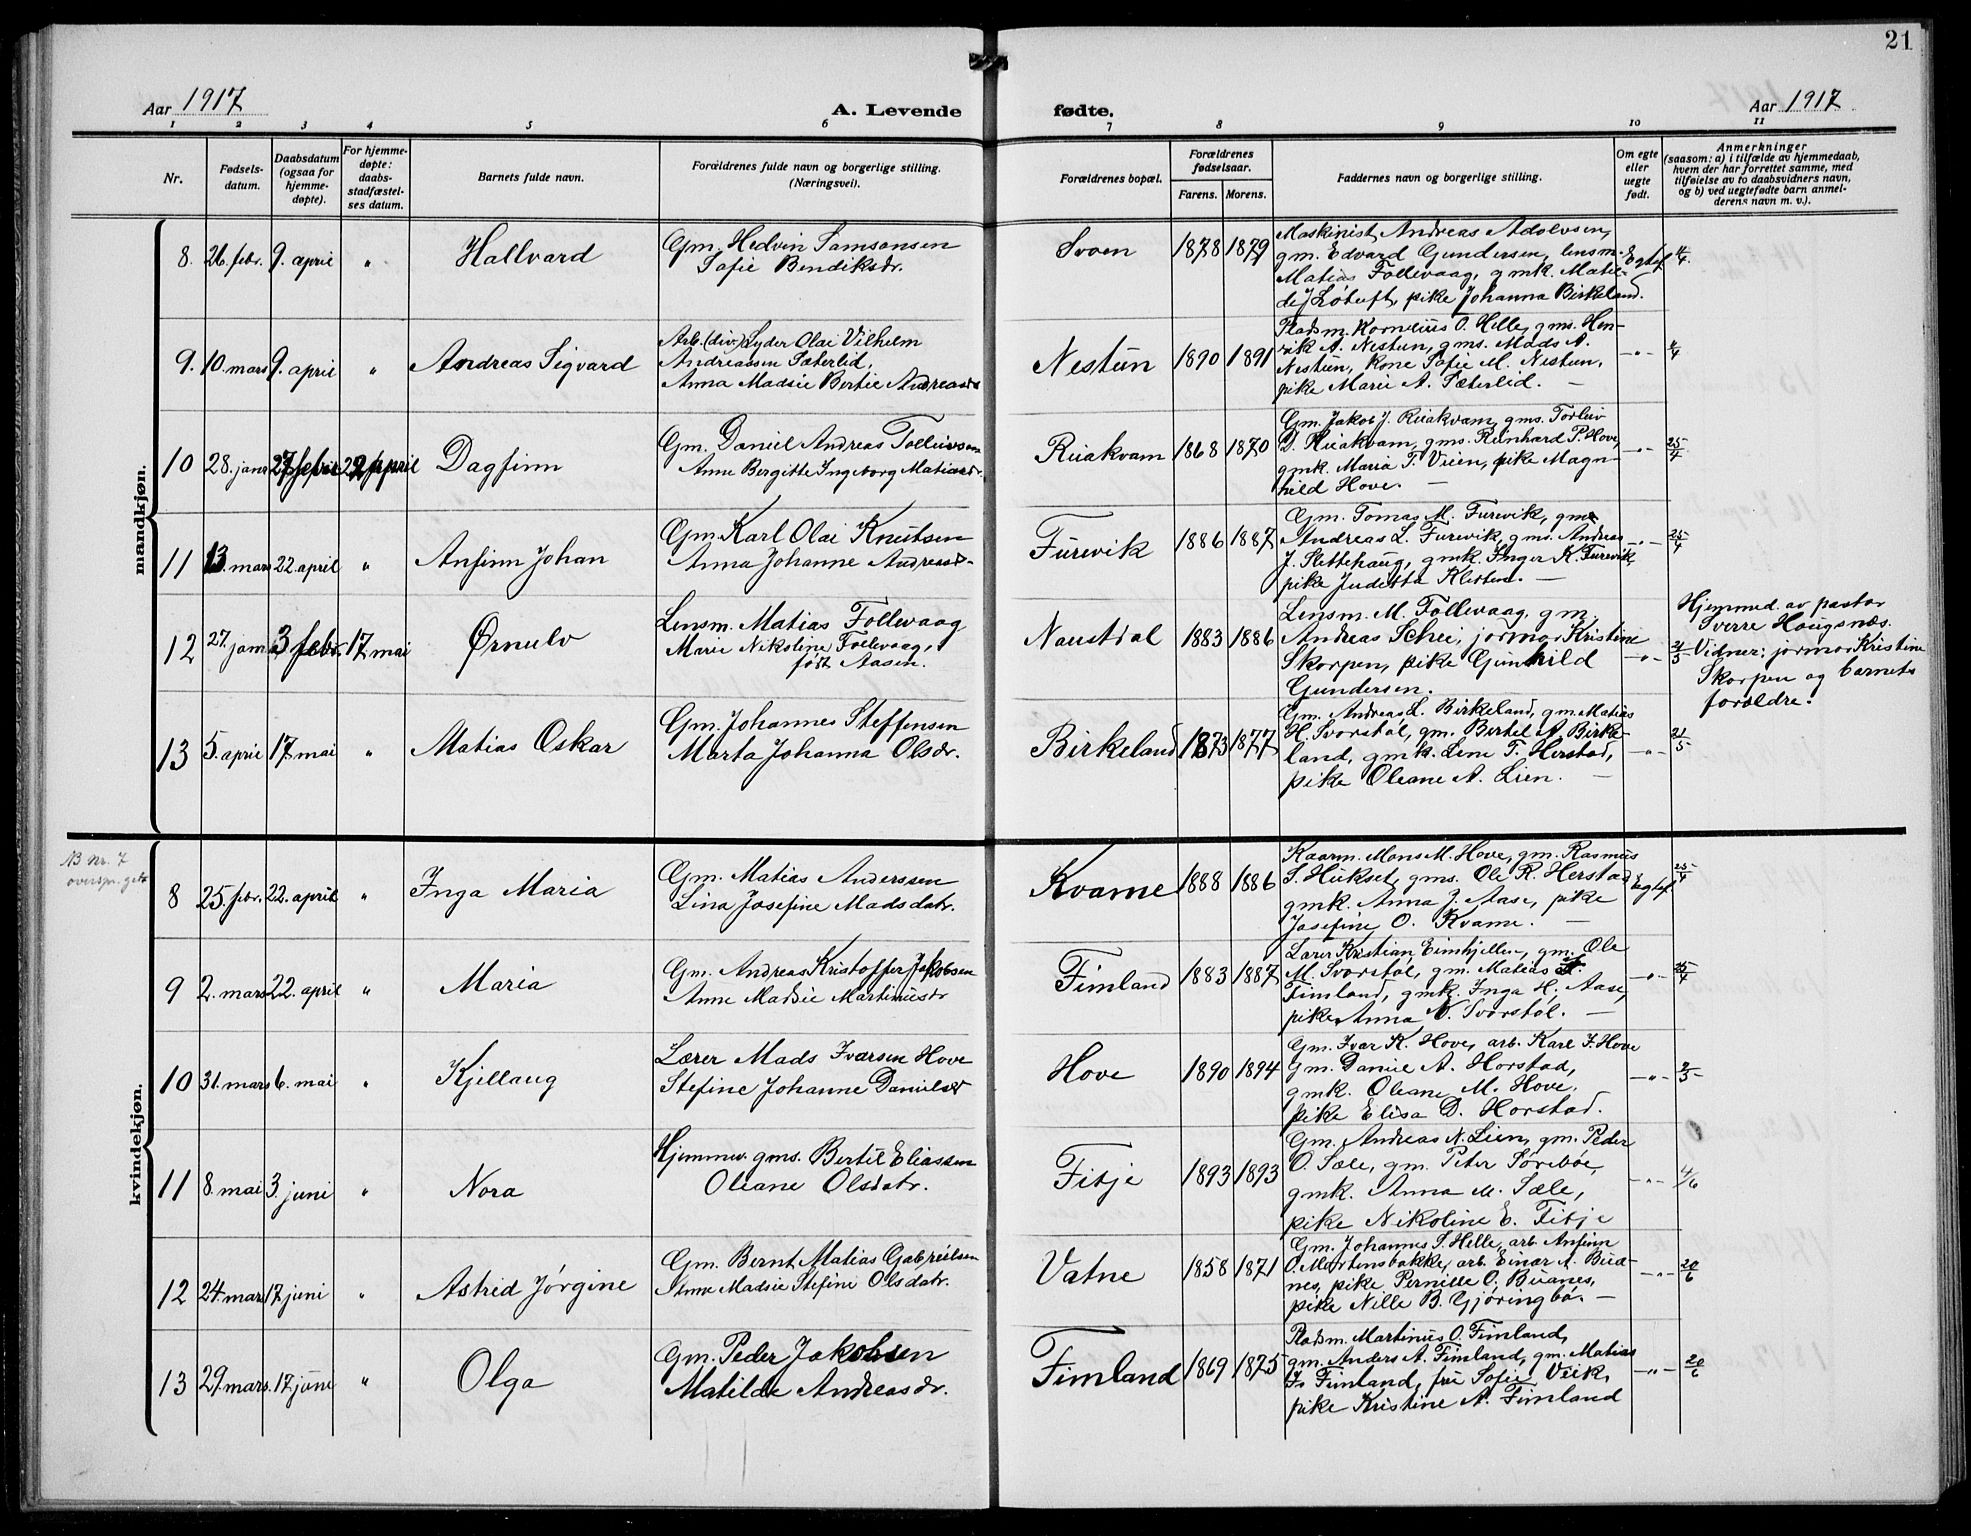 21
Aar 1917
A. Levende fødte.
Aar 1917
1 2 3 4 5 6 7 8 9 10 11
Nr.
Fødsels-
datum.
Daabsdatum
(ogsaa for
hjemme-
døpte).
For hjemme-
døpte:
daabs-
stadfæstel-
ses datum.
Barnets fulde navn.
Forældrenes fulde navn og borgerlige stilling.
(Næringsvei).
Forældrenes bopæl.
Forældrenes
fødselsaar.
Farens. Morens.
Faddernes navn og borgerlige stilling.
Om egte
eller
uegte
født.
Anmerkninger
(saasom: a) i tilfælde av hjemmedaab,
hvem der har forrettet samme, med
tilføielse av to daabsvidners navn,
og b) ved uegtefødte barn anmel-
derens navn m. v.).
mandkjøn.
8. 26. febr. 9. april " Hallvard
Gm. Hedvin Samsonsen
Sofie Bendiksdr.
Svoen 1878 1879
Maskinist Andreas Adolvsen,
gm. Edvard Gundersen, lensm.
Matias Follevaag, gmk. Matil-
de J. Løtuft, pike Johanna Birkeland.
Egtef.
9. 10. mars 9. april " Andreas Sigvard
Arb. (div.) Syder Olai Vilhelm
Andreassen Sæterlid,
Anna Madsie Bertie Andreasd
Nestün 1890 1891
Pladsm. Kornelius O. Helle, gms. Hen-
rik A. Nestün, gms. Mads A.
Nestün, kone Sofie M. Nestun,
pike Marie A. Sæterlid. —
-"-
10 28. janr 27 febr 22 april Dagfinn
Gm. Daniel Andreas Tolleivsen
Anne Bergitte Ingeborg Matiasdr.
Ruakvam 1868 1870
Gm. Jakob J. Ruakvam, gms. Torleiv
D. Ruakvam, gms. Reinhard P. Hove,
gmk. Maria T. Vien, pike Magn-
hild Hove. —
-"- 25/4
11 13. mars 22. april " Anfinn Johan
Gm. Karl Olai Knutsen
Anna Johanne Andreasd-
Furevik 1886 1887
Gm. Tomas M. Furevik, gms
Andreas L. Furevik, gms. Andreas
J. Slettehaug, gmk. Inger K. Furevik,
pike Juditta Kletten. —
-"- 25/4
12 27. jan 3 febr. 17 mai Ørnulv
Lensm. Matias Follevaag
Marie Nikoline Follevaag,
født Aasen.
Naustdal 1883 1886
Lensm. M. Follevaag, gm.
Andreas Schei, jormor Kristine
Skorpen, pike Gunhild
Gundersen.
-"- 21/5
Hjemmed. av pastor
Sverre Haugsnæs.
Vidner: jormor Kristine
Skorpen og barnets
forældre.
13 5. april 17. mai " Matias Oskar
Gm. Johannes Steffensen
Marta Johanna Olsdr.
Birkeland 1873 1877
Gm. Andreas L. Birkeland, gm. Matias
H. Svorstøl, gm. Bertel A. Birke-
land, gmk. Lene T. Herstad,
pike Oleane A. Lien. —
-"- 21/5
NB nr. 7
kvindekjøn.
8 25. febr. 22. april " Inga Maria
Gm. Matias Anderssen
Lina Josefine Madsdatr.
Kvame 1888 1886
Kaarm. Mons M. Hove, gm. Rasmus
gms. Ole R. Herstad
gmk. Anna J. Aase, pike
Josefine O. Kvame. —
Egtef. 25/4
9 2. mars 22. april " Maria
Gm. Andreas Kristoffer Jakobsen
Anne Madsie Martinusdr
Fimland 1883 1887
Lærer Kristian Eimhjellen, gm. Ole
M. Svorstøl, gm. Matias
Fimland, gmk. Inga H. Aase,
pike Anna N. Svorstøl. —
-"- 25/4
10 31. mars 6. mai " Kjellaug
Lærer Mads Iversen Hove
Stefine Johanne Danielsdr
Hove 1890 1894
Gm. Ivar K. Hove, arb. Karl I. Hove
Gm. Daniel A. Horstad,
gmk. Oleane M. Hove,
pike Elisa D. Horstad.
-"-
11 8. mai 3. juni " Nora
Hjemmev. gms. Bertil Eliassen
Oleane Olsdatr.
Fitje 1893 1893
Gm. Andreas N. Lien, gm. Peder
O. Sæle, gm. Peter Sørebøe,
gmk. Anna M. Sæle,
pike Nikoline E. Fitje
-"- 4/6
12 24. mars 17. juni " Astrid Jørgine
Gm. Bernt Matias Gabrielsen
Anne Madsie Stefine Olsdatr.
Vatne 1858 1871
Gm. Johannes S. Helle, arb. Anfinn
O. Martensbakke, arb. Einar A. Bua-
nes, pike Pernille O. Buanes,
pike Nille B. Gjøringbø. —
-"- 20/6
13 29. mars. 17. june " Olga
Gm. Peder Jakobsen
Matilde Andreasdr.
Fimland 1869 1875
Pladsm. Martinus O. Fimland,
gm. Anders A. Fimland, gm. Matias
Js Fimland, frü Sofie Vük,
pike Kristine A. Fimland
-"- 20/6